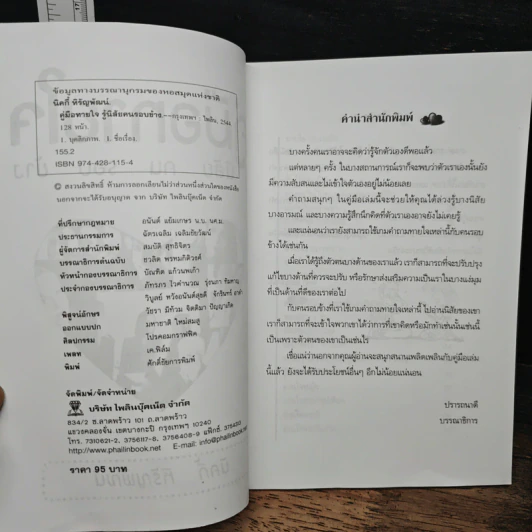 ข้อมูลทางบรรณานุกรมของหอสมุดแห่งชาติ
นิคกี้ หิรัญพัฒน์.
คู่มือทายใจ รู้นิสัยคนรอบข้าง.--กรุงเทพฯ : ไพลิน, 2544.
128 หน้า.
1. บุคลิกภาพ. I. ชื่อเรื่อง.
155.2
ISBN 974-428-115-4
© สงวนลิขสิทธิ์ ห้ามการลอกเลียนไม่ว่าส่วนหนึ่งส่วนใดของหนังสือ
นอกจากจะได้รับอนุญาต จาก บริษัท ไพลินบุ๊คเน็ต จำกัด
ที่ปรึกษากฎหมาย อนันต์ แย้มเกษร น.บ. นศ.ม.
ประธานกรรมการ ฉัตรเฉลิม เฉลิมชัยวัฒน์
ผู้จัดการสำนักพิมพ์ สมบัติ สุทธิจิตร
บรรณาธิการต้นฉบับ ชวลิต พรหมภักดิวงศ์
หัวหน้ากองบรรณาธิการ บัณฑิต แก้วนพเก้า
ประจำกองบรรณาธิการ ภัทรภร ไวคำนวณ
พิสูจน์อักษร วัชรา มีท้วม
ออกแบบปก มหาชาติ ใหม่สมลู
ศิลปกรรม โปรคอมกราฟฟิค
เพลท เค.ฟิล์ม
พิมพ์ ศักดิ์ชัยการพิมพ์
จัดพิมพ์/จัดจำหน่าย
บริษัท ไพลินบุ๊คเน็ต จำกัด
834/2 ซ.ลาดพร้าว 101 ถ.ลาดพร้าว
แขวงคลองจั่น เขตบางกะปิ กรุงเทพฯ 10240
โทร. 7310621-2, 3756117-8, 3756408-9 แฟ็กซ์.
http://www.phailinbook.net E-mail: info@phailinbook.net
ราคา 95 บาท
คำนำสำนักพิมพ์
บางครั้งคนเราอาจจะคิดว่ารู้จักตัวเองดีพอแล้ว
แต่หลายๆ ครั้ง ในบางสถานการณ์เราก็จะพบว่าตัวเราเองนั้นยัง
มีความสับสนและไม่เข้าใจตัวเองอยู่ไม่น้อยเลย
คำถามสนุกๆ ในคู่มือเล่มนี้จะช่วยให้คุณได้ล่วงรู้บางนิสัย
บางอารมณ์ และบางความรู้สึกนึกคิดที่ตัวเราเองอาจยังไม่เคยรู้
และแน่นอนว่าเรายังสามารถใช้เกมคำถามทายใจเหล่านี้กับคนรอบ
ข้างได้เช่นกัน
เมื่อเราได้รู้ถึงตัวตนบางด้านของเราแล้ว เราก็สามารถที่จะปรับปรุง
แก้ไขบางด้านที่ควรจะปรับ หรือรักษาส่งเสริมความเป็นเราในบางแง่มุม
ที่เป็นด้านที่ดีของเราต่อไป
กับคนรอบข้างที่เราใช้เกมคำถามทายใจเหล่านี้ ไปอ่านนิสัยของเขา
เราก็สามารถที่จะเข้าใจพวกเขาได้ว่าการที่เขาคิดหรือมักทำเช่นนั้นเช่นนี้
เป็นเพราะตัวตนของเขาเป็นเช่นไร
เชื่อแน่ว่านอกจากคุณผู้อ่านจะสนุกสนานเพลิดเพลินกับคู่มือเล่ม
นี้แล้ว ยังจะได้รับประโยชน์อื่นๆ อีกไม่น้อยแน่นอน
ปรารถนาดี
บรรณาธิการ